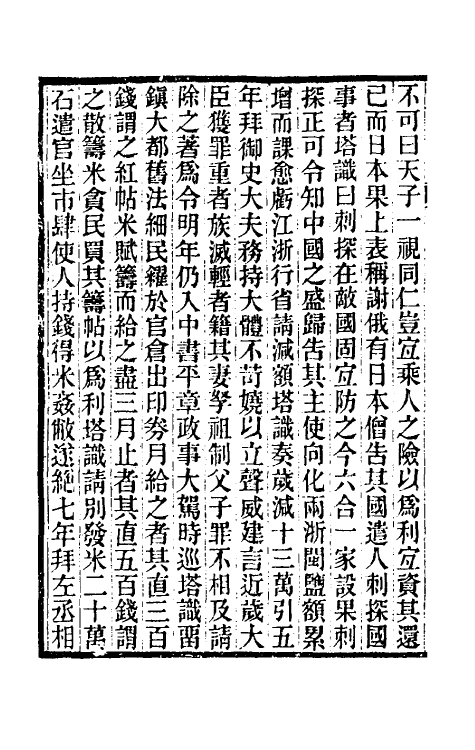 不可曰天子一視同仁豈宜乘人之險以爲利宜資其還
已而日本果上表稱謝俄有日本僧告其國遣人刺探國
事者塔識曰刺探在敵國固宜防之今六合一家設果刺
探正可令知中國之盛歸告其主使向化兩浙閩鹽額累
增而課愈虧江浙行省請減額塔識奏歲減十三萬引五
年拜御史大夫務持大體不苛嬈以立聲威建言近歲大
臣獲罪重者族滅輕者籍其妻孥祖制父子罪不相及請
除之著爲令明年仍入中書平章政事大駕時巡塔識畱
鎭大都舊法細民糴於官倉出印劵月給之者其直三百
錢謂之紅帖米賦籌而給之盡三月止者其直五百錢謂
之散籌米貪民買其籌帖以爲利塔識請別發米二十萬
石遣官坐市肆使人持錢得米姦敝遂絕七年拜左丞相